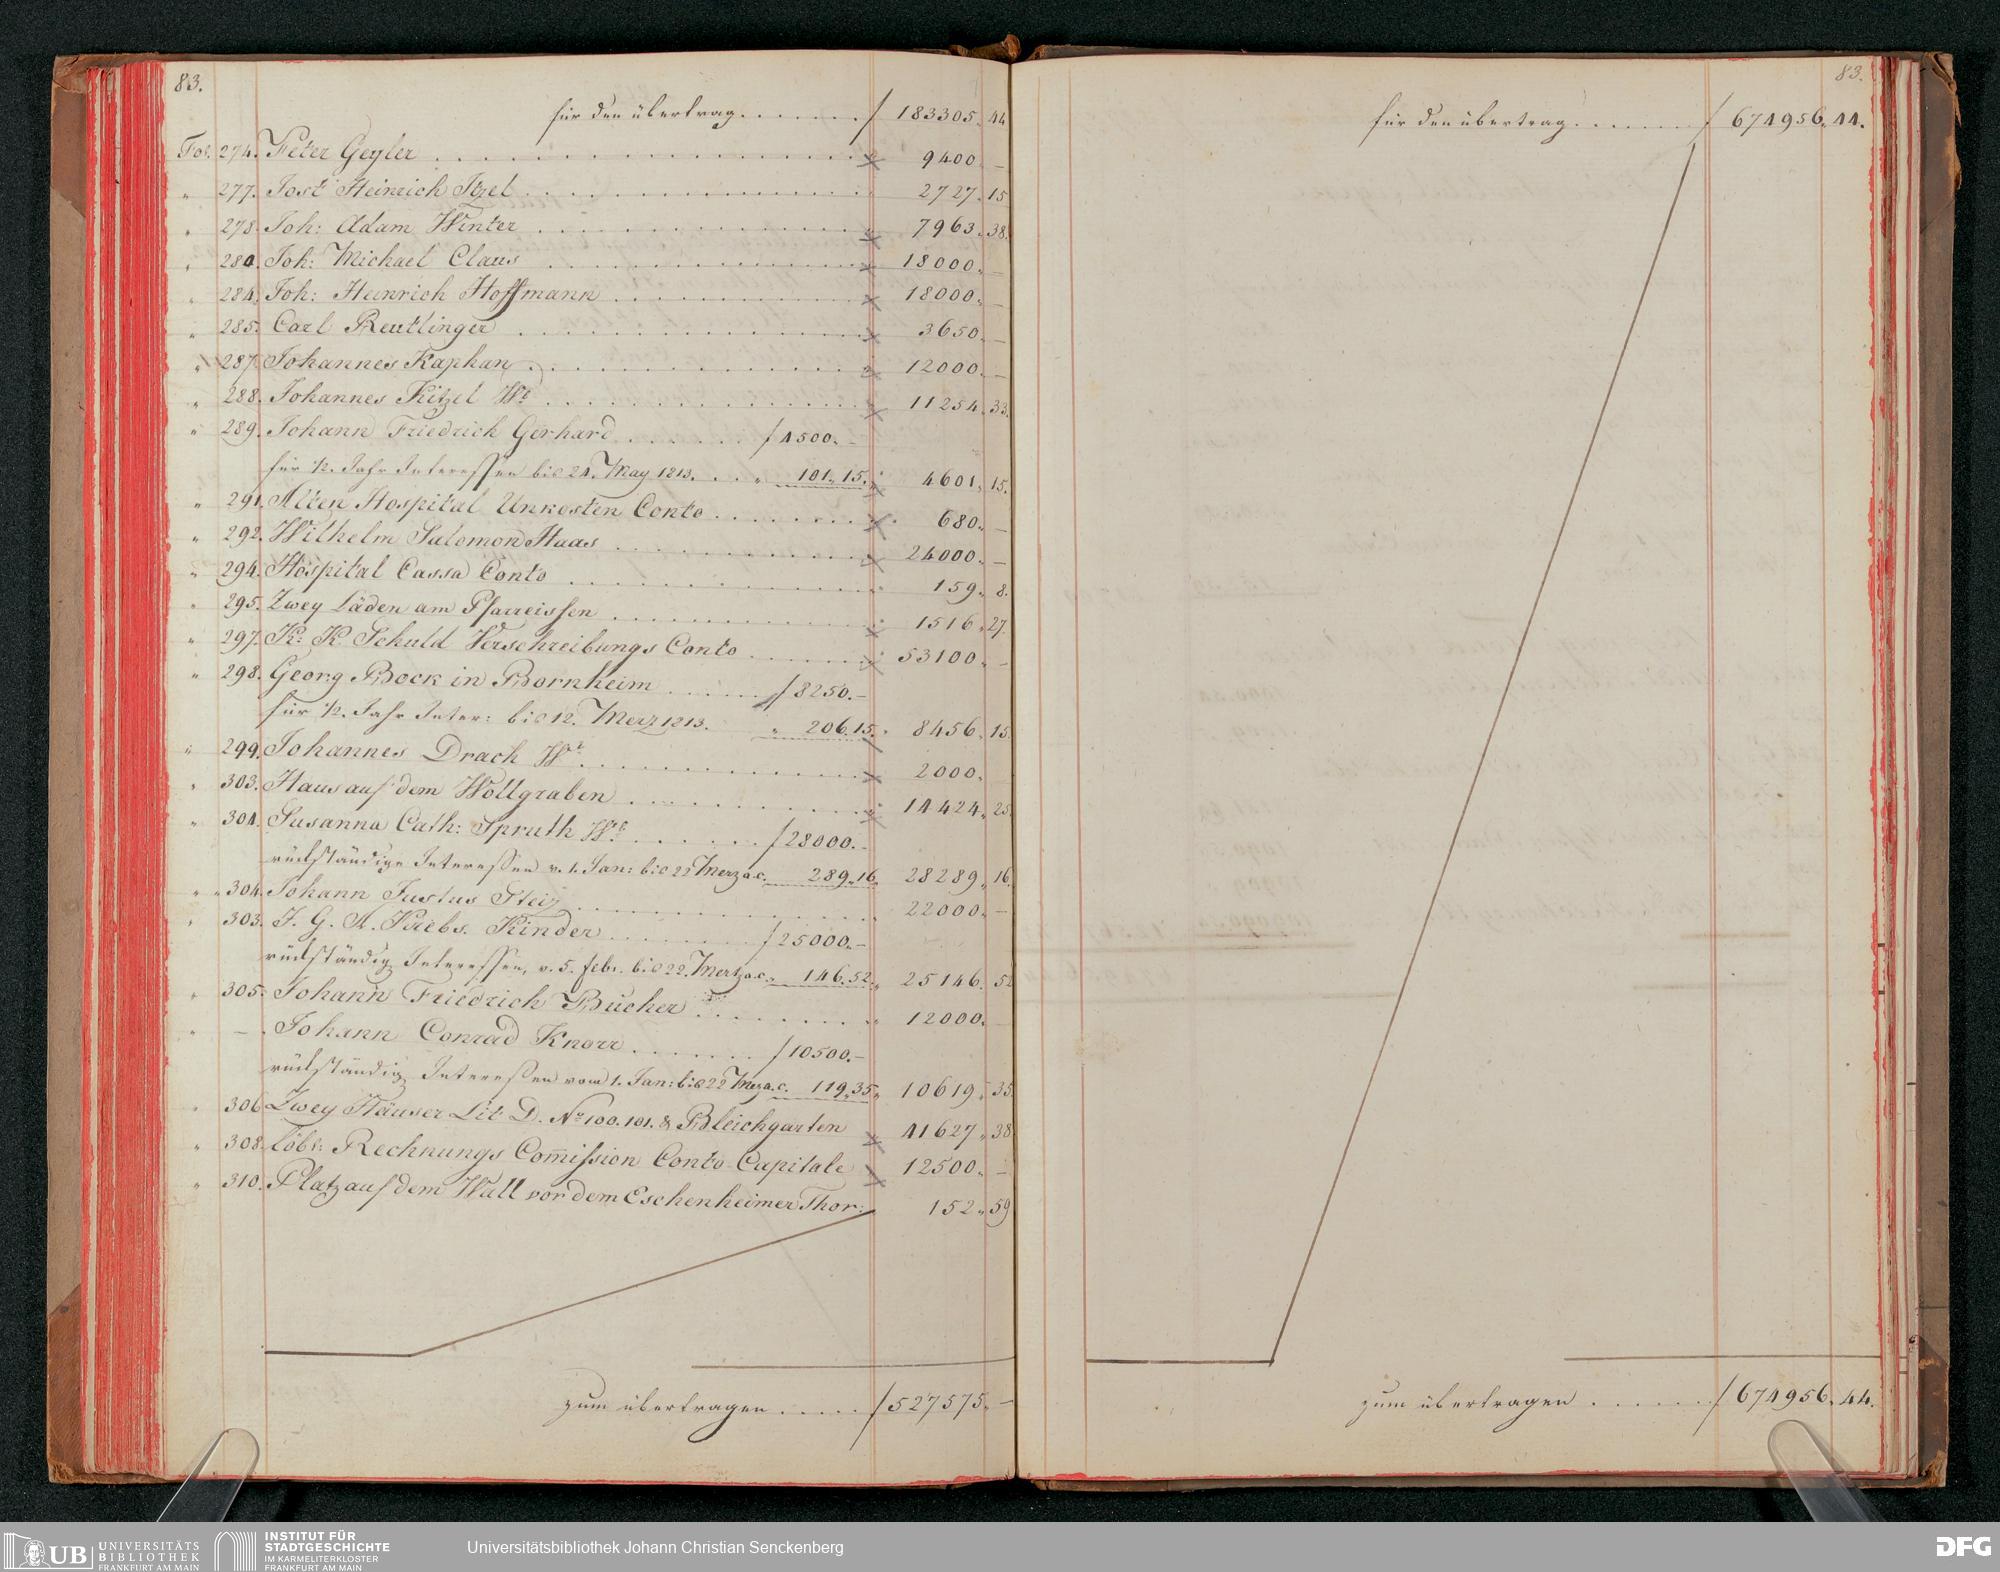 83.
für den übertrag . . . . . . . f 183305. 44
Fol. 274. Peter Geyler . . . . . . 9400. —
" 277. Jost Heinrich Itzel . . . . . . 2727. 15
" 278. Joh: Adam Winter . . . . . . 7963. 38.
" 280. Joh: Michael Claus . . . . . . 18000. —
" 284. Joh: Heinrich Hoffmann . . . . . . 18000. —
" 285. Carl Reutlinger . . . . . . 3650. —
" 287. Johannes Kaphan . . . . . . 12000. —
" 288. Johannes Kitzel Wb . . . . . . 11254. 33.
" 289. Johann Friedrich Gerhard . . . . . . f 4500. —
für 1/2. Jahr Interessen bis 24. May 1813. . . " 101. 15. " 4601. 15.
" 291. Alten Hospital Unkosten Conto . . . . . . 680. —
" 292. Wilhelm Salomon Haas . . . . . . 24000. —
" 294. Hospital Cassa Conto . . . . . . 159. 8.
" 295. Zwey Läden am Pfarreissen . . . . . . 1516. 27.
" 297. K: K. Schuld Verschreibungs Conto . . . . . . 53100. —
" 298. Georg Bock in Bornheim . . . . . . f 8250. —
für 1/2. Jahr Inter: bis 12. Merz 1813. " 206. 15. " 8456. 15.
" 299. Johannes Drach Wb . . . . . . 2000.
" 303. Haus auf dem Wollgraben . . . . . . 14424. 25.
" 304. Susanna Cath: Spruth Wb . . . . . . f 28000. —
rückständige Interessen v. 1. Jan: bis 22 Merz a.c. 289. 16. 28289. 16.
" " 304. Johann Justus Steiz . . . . . . 22000. —
" 303. J. G. A. Krebs. Kinder . . . . . . f 25000. —
rückständig Interessen, v. 5. febr. bis 22. Mertz a.c. " 146. 52. " 25146. 52
" 305. Johann Friedrich Bücher . . . . . . 12000.
" — . Johann Conrad Knorr . . . . . . f 10500. —
rückständig Interessen vom 1. Jan: bis 22 Merz a.c. 119. 35. " 10619. 35.
" 306 Zwey Häuser Lit. D. No 100. 101. & Bleichgarten 41627. 38
" 308. Löbl: Rechnungs Com̄ission Conto Capitale 12500. —
" 310. Platz auf dem Wall vor dem Eschenheimer Thor: 152. 59
zum übertragen . . . . . f 527575. —
83.
für den übertrag . . . . . . . f 674956. 44.
zum übertragen . . . . . . . f 674956. 44.
UB UNIVERSITÄTS
BIBLIOTHEK
FRANKFURT AM MAIN
INSTITUT FÜR
STADTGESCHICHTE
IM KARMELITERKLOSTER
FRANKFURT AM MAIN
Universitätsbibliothek Johann Christian Senckenberg
DFG